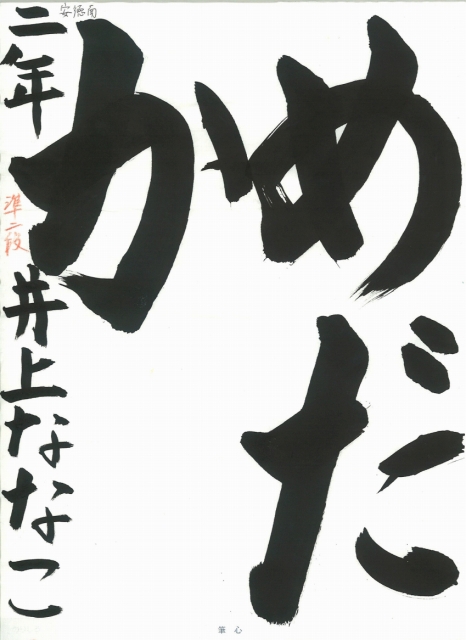 めだ
か
二年 井上ななこ
安徳南
準二段
筆心